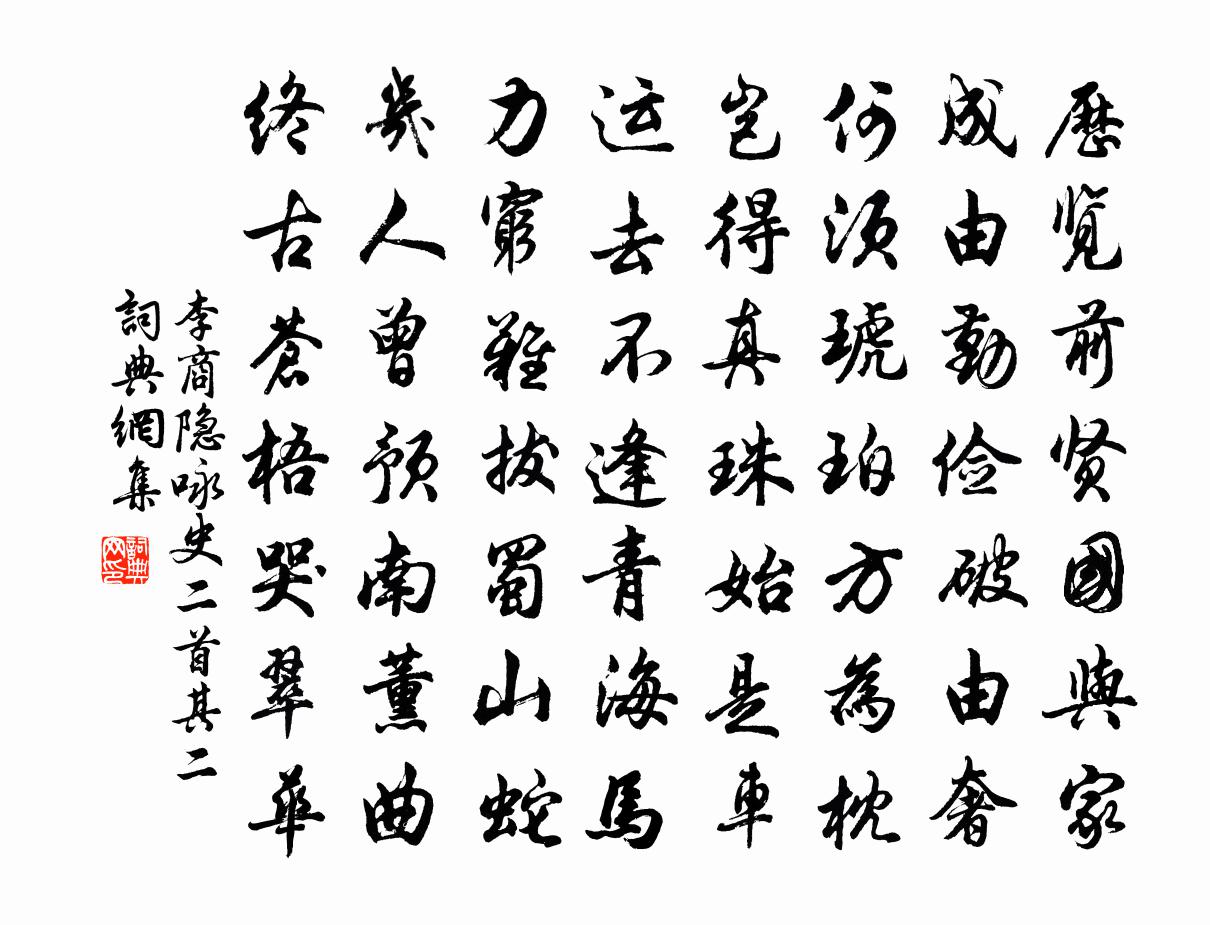 歷览前贤國與家
成由勤俭破由奢
何须琥珀方為枕
岂得真珠始是車
运去不逢青海馬
力窮難拔蜀山蛇
幾人曾预南薰曲
終古蒼梧哭翠華
李商隐咏史二首其二
詞典網集
詞典网印